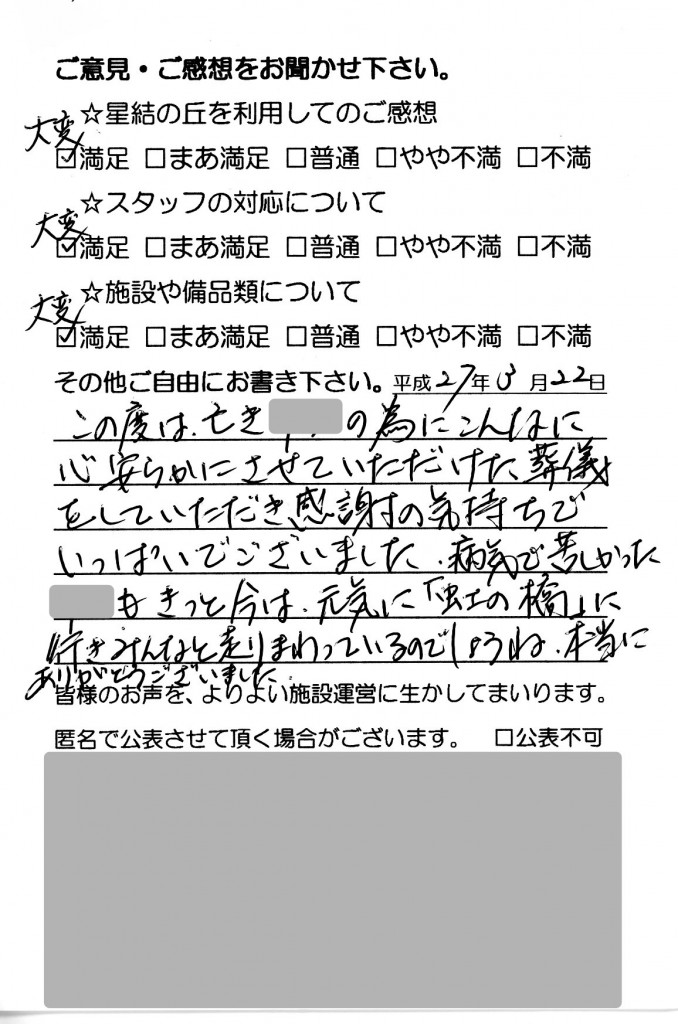 ご意見・ご感想をお聞かせ下さい。
☆星結の丘を利用してのご感想
大変
☑満足 □まあ満足 □普通 □やや不満 □不満
☆スタッフの対応について
大変
☑満足 □まあ満足 □普通 □やや不満 □不満
☆施設や備品類について
大変
☑満足 □まあ満足 □普通 □やや不満 □不満
その他ご自由にお書き下さい。平成27年 月22日
この度は、亡き の為にこんなに
心安らかにさせていただけた、葬儀
をしていただき感謝の気持ちで
いっぱいでございました。病気で苦しかった
もきっと今は、元気に「虹の橋」に
行きみんなと走りまわっているのでしょうね。本当に
ありがとうございました
皆様のお声を、よりよい施設運営に生かしてまいります。
匿名で公表させて頂く場合がございます。 □公表不可